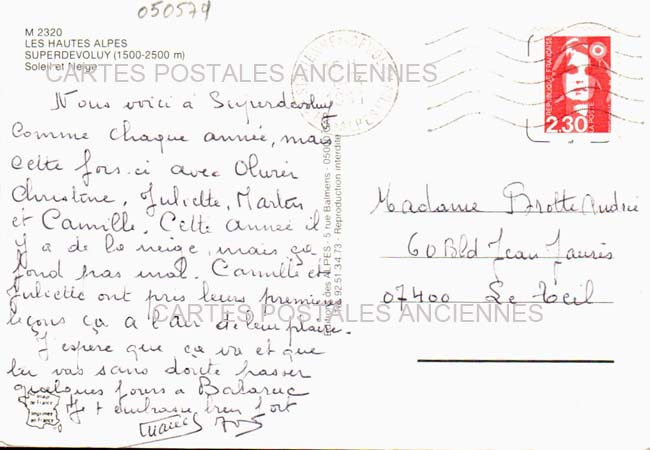 050574
M 2320
LES HAUTES ALPES
SUPERDEVOLUY (1500-2500 m)
Soleil et Neige
CARTES POSTALES ANCIENNES
Nous voici à Superdévoluy
comme chaque année, mais
cette fois-ci avec Olivier
Christine, Juliette, Martin
et Camille. Cette année il
y a de la neige, mais ça
fond pas mal. Camille et
Juliette ont pris leurs premières
leçons ça a l'air de leur plaire.
J'espère que ça va et que
tu vas sans doute passer
quelques jours à Balaruc
Je t'embrasse bien fort
REPUBLIQUE FRANÇAISE
2,30
LA POSTE
Madame Brotte Andrée
60 Bld Jean Jaurès
07400 Le Teil
CARTES POSTALES ANCIENNES
des ALPES - 5 rue Balmens - 05000
92.51.34.73 - Reproduction interdite
Imprimé en France